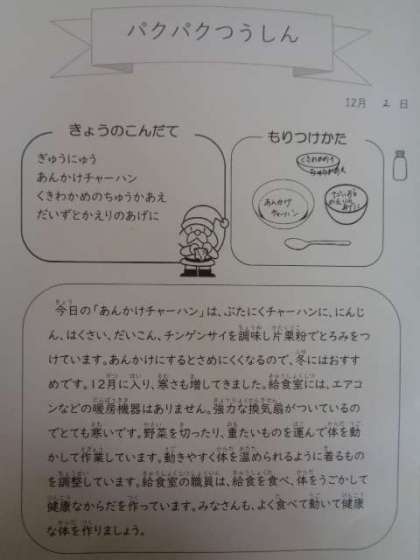 パクパクつうしん
12月 2 日
きょうのこんだて
ぎゅうにゅう
あんかけチャーハン
くきわかめのちゅうかあえ
だいずとかえりのあげに
もりつけかた
くきわかめの
ちゅうかあえ
あんかけ
チャーハン
だいずと
かえりの
あげに
今日の「あんかけチャーハン」は、ぶたにくチャーハンに、にんじ
ん、はくさい、だいこん、チンゲンサイを調味し片栗粉でとろみをつ
けています。あんかけにするとさめにくくなるので、冬にはおすす
めです。12月に入り、寒さも増してきました。給食室には、エアコ
ンなどの暖房機器はありません。強力な換気扇がついているの
でとても寒いです。野菜を切ったり、重たいものを運んで体を動
かして作業しています。動きやすく体を温められるように着るもの
を調整しています。給食室の職員は、給食を食べ、体をうごかして
健康なからだを作っています。みなさんも、よく食べて動いて健康
な体を作りましょう。